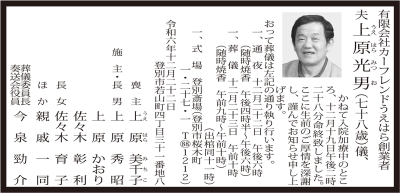 有限会社カーフレンドうえはら創業者
夫 上原光男(七十八歳)儀、
うえ はら みつ お
かねて入院加療中のとこ
ろ、十二月十九日午後二時
二十八分命終致しました。
ここに生前のご厚情を深謝
し、謹んでお知らせ申し上
げます。
おって葬儀は左記の通り執り行います。
一、通夜 十二月二十二日 午後六時
(随時焼香 午後四時半〜午後六時)
一、葬儀 十二月二十三日 午前十時
(随時焼香 午前九時〜午前十時)
一、式場 登別斎場(登別市桜木町
一・二十七・一 ☎88・1212)
令和六年十二月二十二日
登別市若山町四丁目三十二番地八
喪主 上原美千子
うえ はら み ち こ
施主・長男 上原秀昭
上原かおり
長女 佐々木育子
佐々木彰利
ほか 親戚一同
葬儀委員長
奏送会役員 今泉勁介